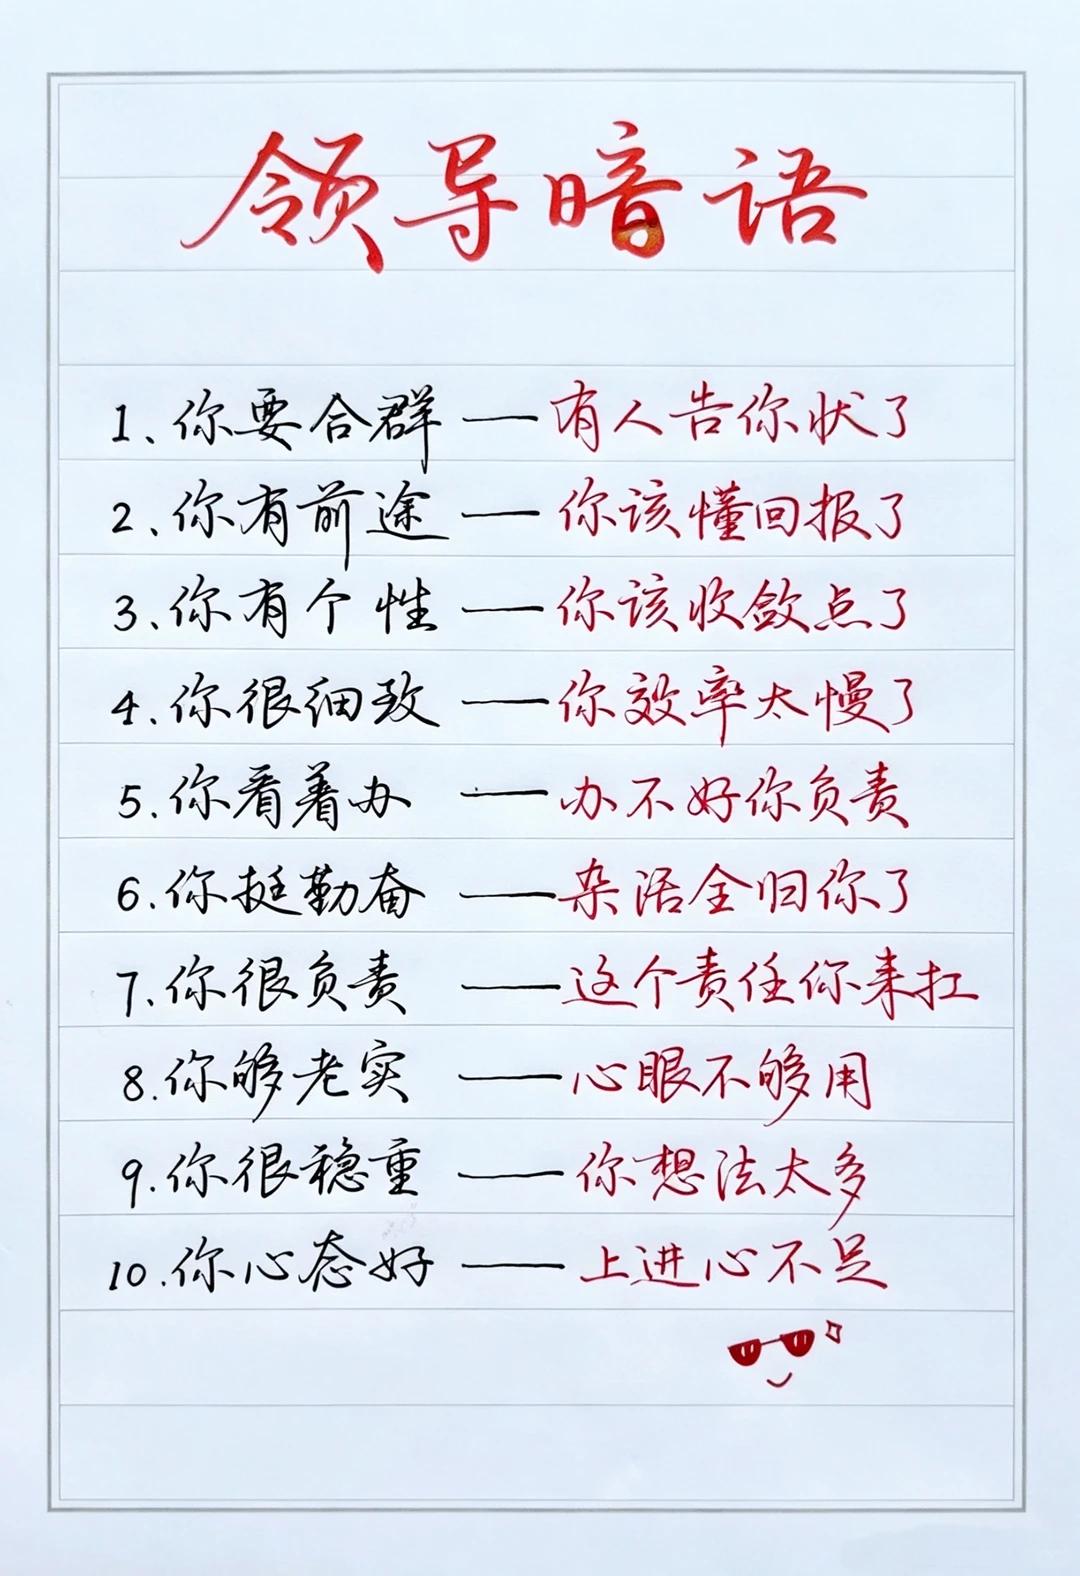 领导暗语
1、你要合群——有人告你状了
2、你有前途——你该懂回报了
3、你有个性——你该收敛点了
4、你很细致——你效率太慢了
5、你看着办——办不好你负责
6、你挺勤奋——杂活全归你了
7、你很负责——这个责任你来扛
8、你够老实——心眼不够用
9、你很稳重——你想法太多
10、你心态好——上进心不足